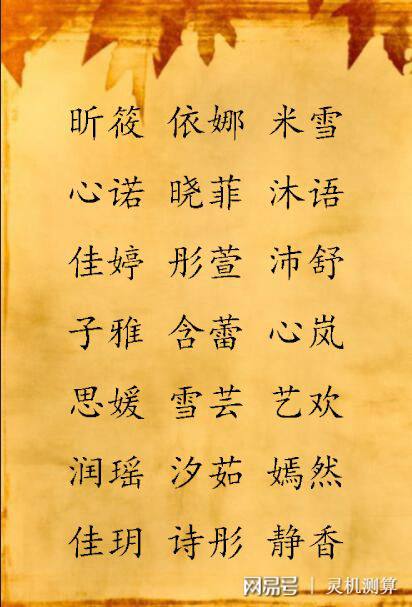 昕筱 依娜 米雪
心诺 晓菲 沐语
佳婷 彤萱 沛舒
子雅 含蕾 心岚
思媛 雪芸 艺欢
润瑶 汐茹 嫣然
佳玥 诗彤 静香
网易号 | 灵机测算